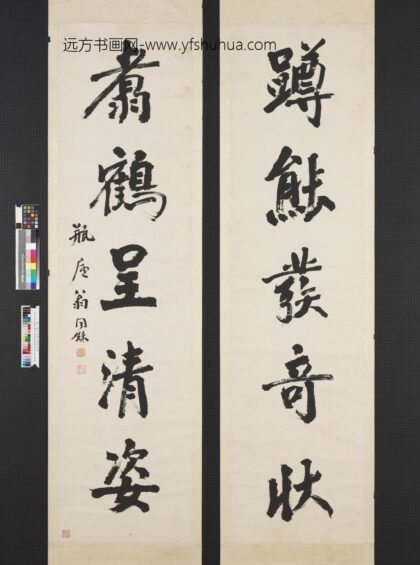 远方书画网-www.yfshuhua.com
蹲熊發奇狀
翥鶴呈清姿
瓶廬翁同龢